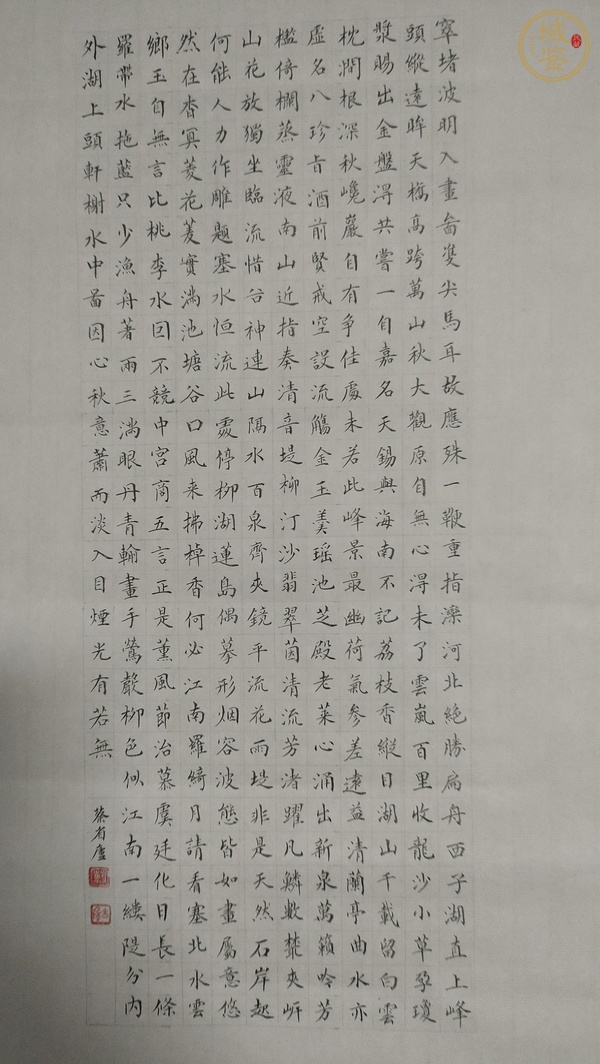 窣堵波明入畫啚雙尖馬耳故應殊一鞭重指灤河北絕勝扁舟西子湖直上峰
頭縱遠眸天橋高跨萬山秋大觀原自無心得未了雲嵐百里收龍沙小草孕瓊
漿賜出金盤得共嘗一自嘉名天錫與海南不記荔枝香縱目湖山千載留白雲
枕澗根深秋巉巖自有爭佳處未若此峰景最幽荷氣參差遠益清蘭亭曲水亦
虛名八珍旨酒前賢戒空設流觴金玉羹瑤池芝殿老萊心涌出新泉萬籟吟芳
檻倚欄蒸靈液南山近指奏清音堤柳汀沙翡翠茵清流芳渚躍凡鱗數叢夾岍
山花放獨坐臨流惜谷神連山隔水百泉齊夾鏡平流花雨堤非是天然石岸起
何能人力作雕題塞水恒流此處停柳湖蓮島偶摹形烟容波態皆如畫屬意悠
然在杳冥菱花菱實滿池塘谷口風來拂棹香何必江南羅綺月請看塞北水雲
鄉玉自無言比桃李水回不競中宮商五言正是薰風節治慕虞廷化日長一條
羅帶水拖藍只少漁舟著兩三滿眼丹青輸畫手鶯聲柳色似江南一縷隄分內
外湖上頭軒榭水中啚因心秋意蕭而淡入目煙光有若無
蔡省廬